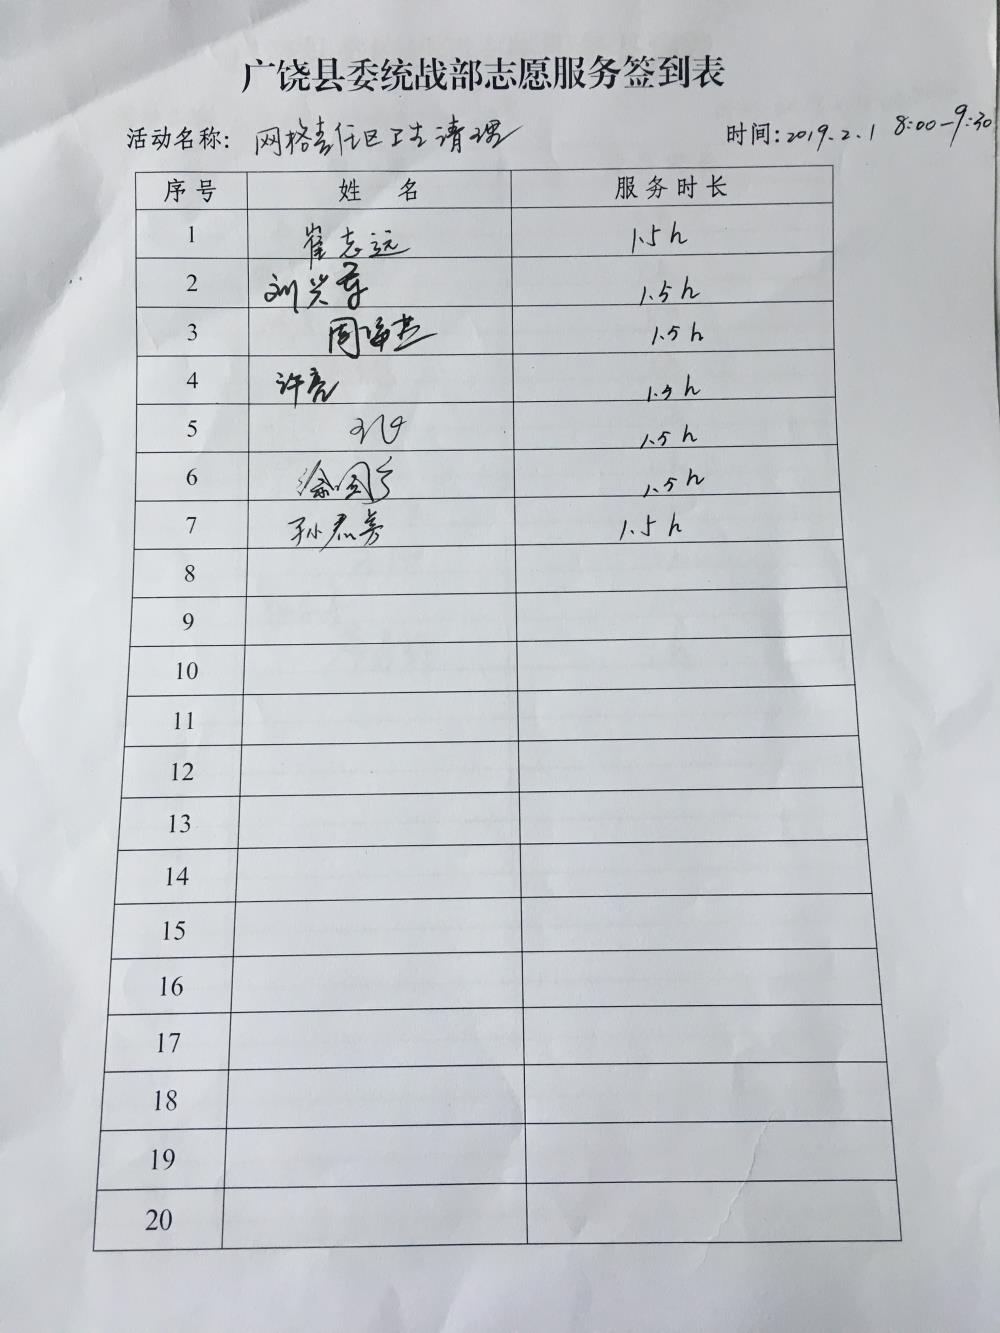 广饶县委统战部志愿服务签到表
活动名称: 网格责任区卫生清理 时间: 2019.2.1 8:00-9:30
序号 姓名 服务时长
1 崔志远 1.5h
2 刘兴 1.5h
3 周 1.5h
4 许亮 1.5h
5 1.5h
6 徐国 1.5h
7 孙君芳 1.5h
8
9
10
11
12
13
14
15
16
17
18
19
20